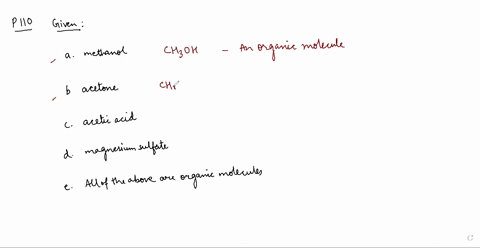 P110 Given:
a. methanol CH3OH - An organic molecule
b acetone CH
c. acetic acid
d. magnesium sulfate
e. All of the above are organic molecules